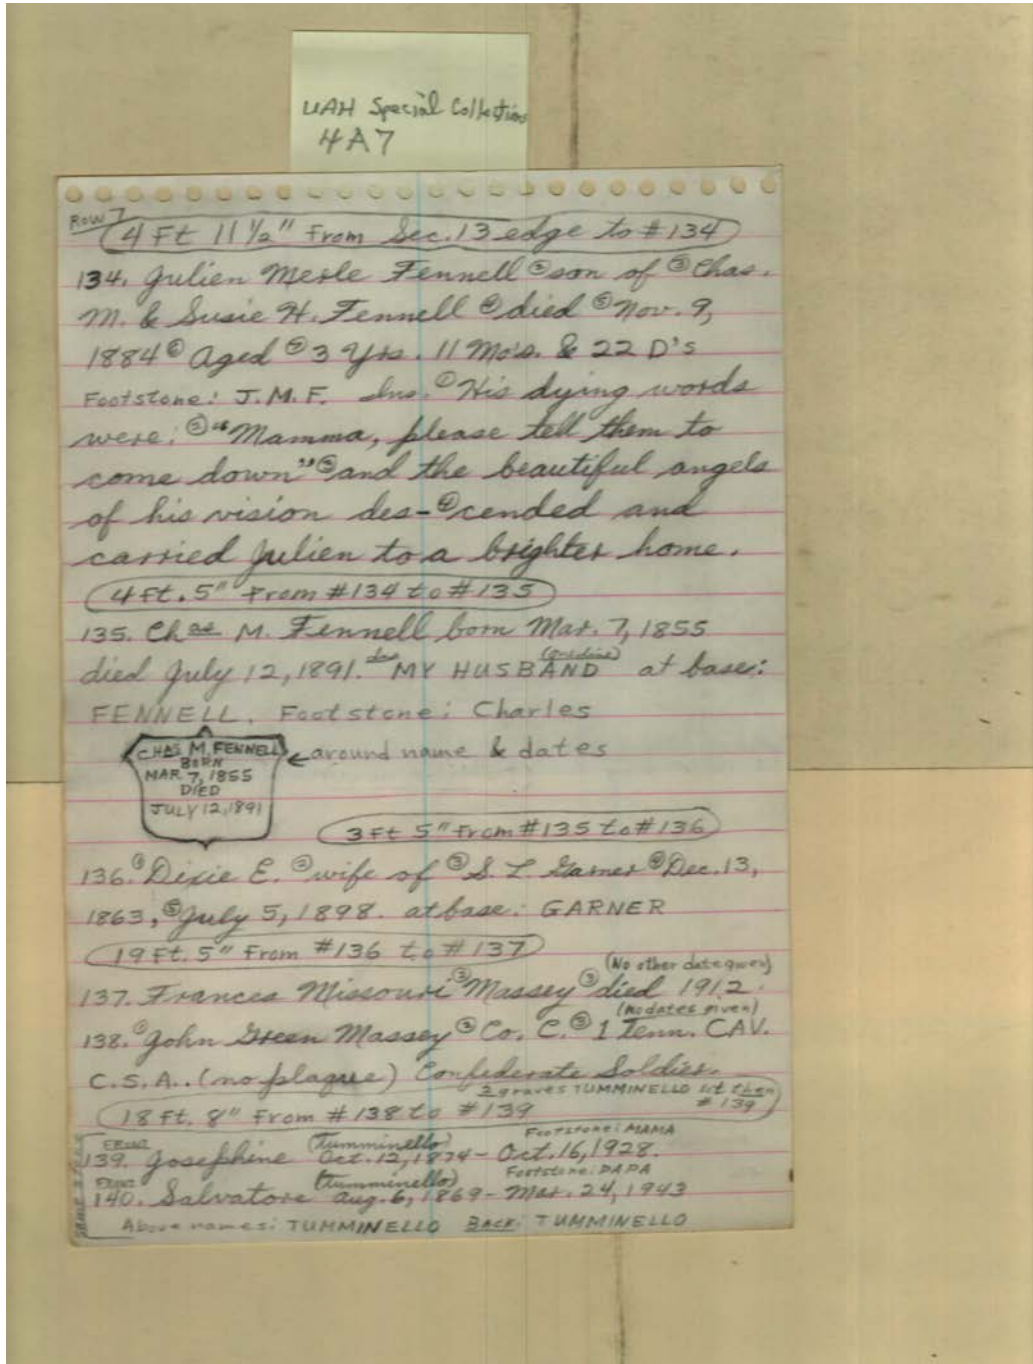 UAH Special Collections
4A7
Row 7
4 Ft 11 1/2" From Sec. 13 edge to #134
134. Julien Merle Fennell ② son of ③ Chas.
M. & Susie H. Fennell ④ died ⑤ Nov. 9,
1884 ⑥ Aged ⑦ 3 Yrs. 11 Mo's. & 22 D's
Footstone: J.M.F. Ins. ① His dying words
were: ② "Mamma, please tell them to
come down" ③ and the beautiful angels
of his vision des- ④ cended and
carried Julien to a brighter home.
4 Ft. 5" From #134 to #135
135. Chas M. Fennell born Mar. 7, 1855
died July 12, 1891. Ins MY HUSBAND at base:
FENNELL. Footstone: Charles
CHAS M. FENNELL
BORN
MAR. 7, 1855
DIED
JULY 12, 1891
← around name & dates
3 Ft 5" From #135 to #136
136. ① Dixie E. ② wife of ③ S. L. Garner ④ Dec. 13,
1863, ⑤ July 5, 1898. at base: GARNER
19 Ft. 5" From #136 to #137
(No other date given)
137. Frances Missouri ② Massey ③ died 1912.
(no dates given)
138. ① John Green Massey ② Co. C. ③ 1 Tenn. CAV.
C.S.A.. (no plaque) Confederate Soldier.
2 graves TUMMINELLO lit then
# 139
18 Ft. 8" From # 138 to #139
Footstone: MAMA
FRONT (Tumminello)
139. Josephine Oct. 12, 1874 - Oct. 16, 1928.
Footstone: PAPA
FRONT (Tumminello)
140. Salvatore Aug. 6, 1869 - Mar. 24, 1943
Above names: TUMMINELLO Back: TUMMINELLO